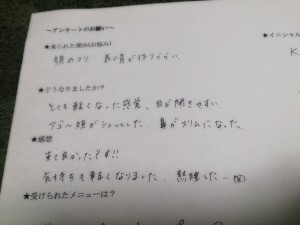 ～アンケートのお願い～
★イニシャル
★来られた理由(お悩み)
K
顔のコリ 表情が作りづらい
★どうなりましたか？
とても軽くなった感覚、目が開きやすい
アゴ～頬がシュッとした、鼻がスリムになった。
★感想
来て良かったです!!
気持ちも軽くなりました、熟睡した…笑)
★受けられたメニューは？